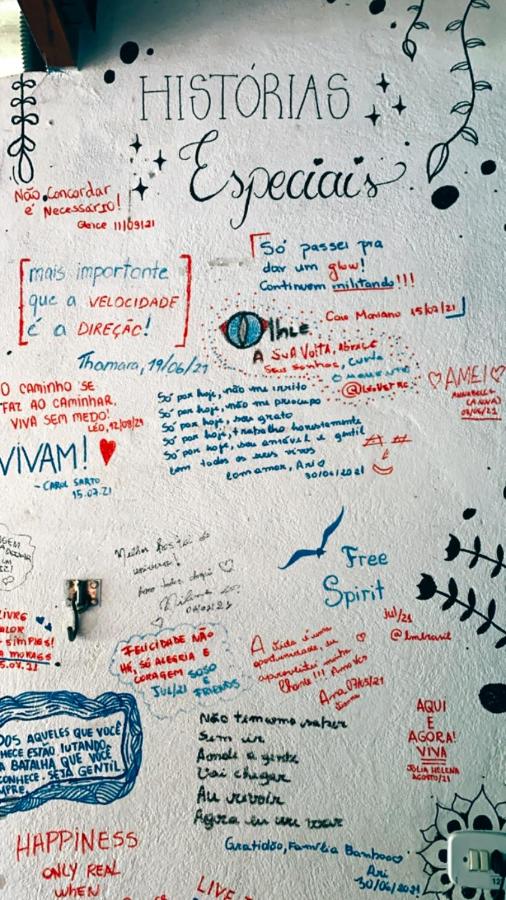 HISTÓRIAS
Especiais
Não Concordar
é Necessário!
Gleice 11/09/21
mais importante
que a VELOCIDADE
é a DIREÇÃO!
Thamara, 19/06/21
Só passei pra
dar um glow!
Continuem militando!!!
Caio Mariano 15/07/21
Olhe
A SUA VOLTA, ABRACE
Seus sonhos, curta
o momento
O CAMINHO SE
FAZ AO CAMINHAR,
VIVA SEM MEDO!
LÉO, 12/08/21
VIVAM!
- CAROL SARTO
15.07.21
Só por hoje, não me irrito
Só por hoje, não me preocupo
Só por hoje, sou grato
Só por hoje, trabalho honestamente
Só por hoje, sou amável e gentil
com todos os seus vivos
com amor, Ari
30/06/2021
AMEI
Melhor hostel do
universo!
Free
Spirit
Jul/21
LIVRE
SIMPLES!
FELICIDADE NÃO
HÁ, SÓ ALEGRIA E
CORAGEM SOSO
JUL/21 E FRIENDS
A vida é uma
oportunidade, eu
aproveitei muito
Ana 07/05/21
DOS AQUELES QUE VOCÊ
HECE ESTÃO LUTANDO
A BATALHA QUE VOCÊ
CONHECE. SEJA GENTIL
MPRE.
Não temamo saber
Sem ir
Aonde a gente
Vai chegar
Au revoir
Agora eu vou voar
AQUI
E
AGORA!
VIVA
JÚLIA HELENA
AGOSTO/21
Gratidão, Família Bamboo
Ari
30/06/2021
HAPPINESS
ONLY REAL
WHEN
LIVE